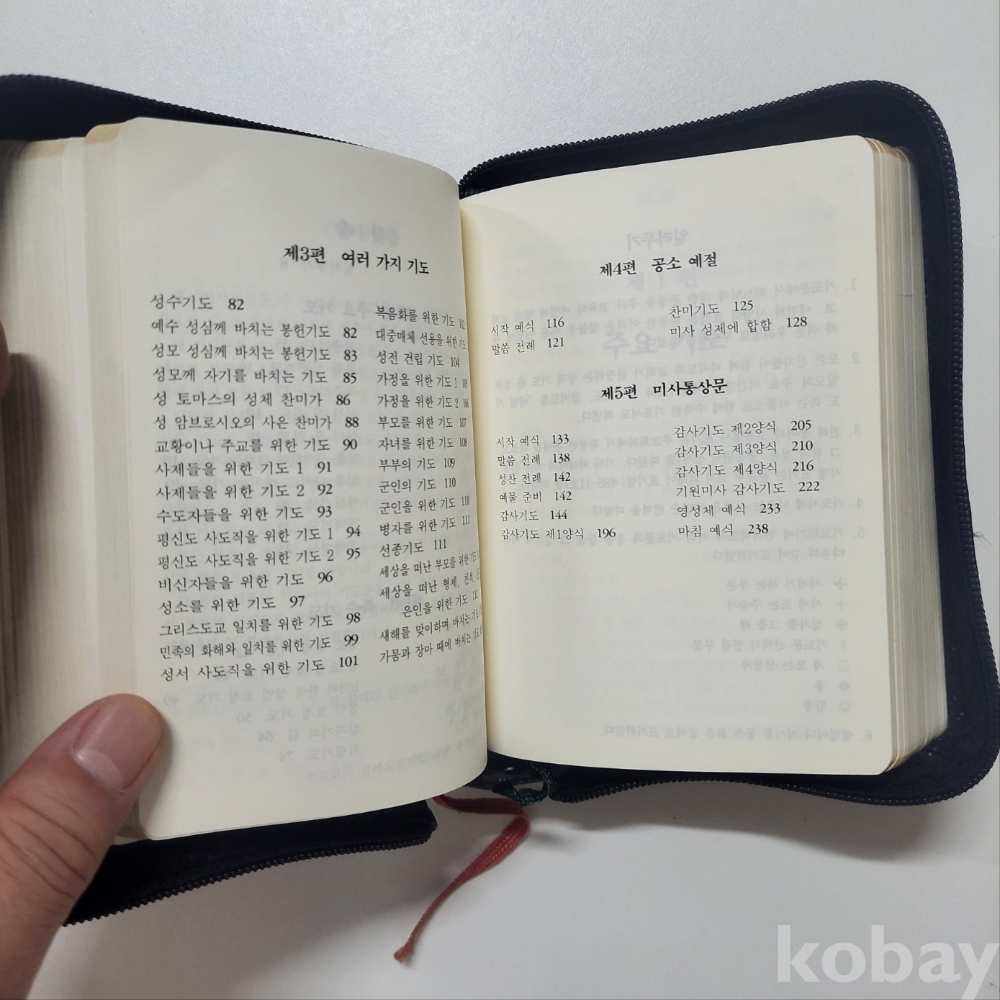 제3편 여러 가지 기도
성수기도 82
예수 성심께 바치는 봉헌기도 82
성모 성심께 바치는 봉헌기도 83
성모께 자기를 바치는 기도 85
성 토마스의 성체 찬미가 86
성 암브로시오의 사은 찬미가 88
교황이나 주교를 위한 기도 90
사제들을 위한 기도 1 91
사제들을 위한 기도 2 92
수도자들을 위한 기도 93
평신도 사도직을 위한 기도 1 94
평신도 사도직을 위한 기도 2 95
비신자들을 위한 기도 96
성소를 위한 기도 97
그리스도교 일치를 위한 기도 98
민족의 화해와 일치를 위한 기도 99
성서 사도직을 위한 기도 101
복음화를 위한 기도 102
대중매체 선용을 위한 기도
성전 건립 기도 104
가정을 위한 기도 1 105
가정을 위한 기도 2 106
부모를 위한 기도 107
자녀를 위한 기도 108
부부의 기도 109
군인의 기도 110
군인을 위한 기도 110
병자를 위한 기도 111
선종기도 111
세상을 떠난 부모를 위한 기도
세상을 떠난 형제, 친척,
은인을 위한 기도
새해를 맞이하며 바치는 기도
가뭄과 장마 때에 바치는 기도
제4편 공소 예절
시작 예식 116
말씀 전례 121
찬미기도 125
미사 성제에 합함 128
제5편 미사통상문
시작 예식 133
말씀 전례 138
성찬 전례 142
예물 준비 142
감사기도 144
감사기도 제1양식 196
감사기도 제2양식 205
감사기도 제3양식 210
감사기도 제4양식 216
기원미사 감사기도 222
영성체 예식 233
마침 예식 238
kobay